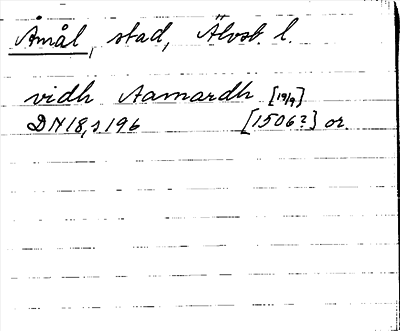 Åmål, stad, Älvsb. l.
vidh Aamardh [19/9]
DN18, s 196 [1506?] or.